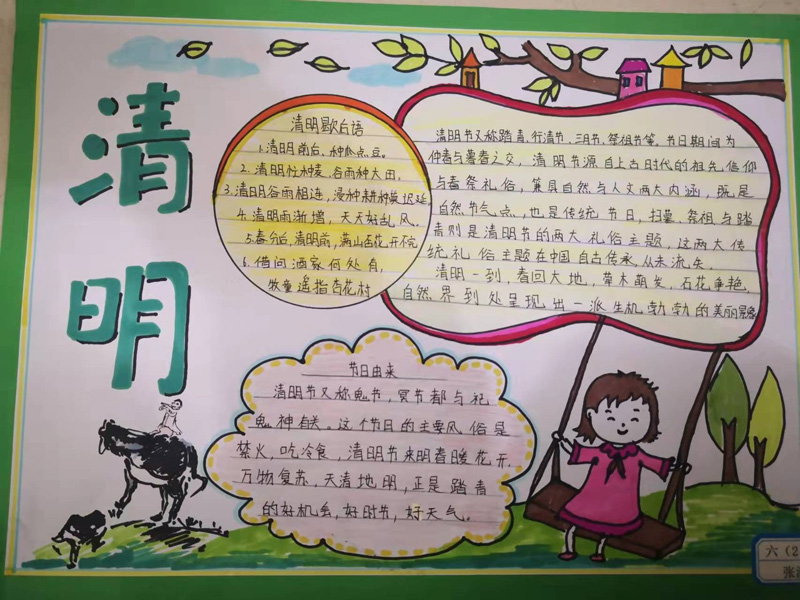 清明
清明歇后语
1.清明前后,种瓜点豆。
2.清明忙种麦,谷雨种大田。
3.清明谷雨相连,浸种耕种莫迟延
4.清明雨渐增,天天好乱风。
5.春分后,清明前,满山杏花开不完
6.借问酒家何处有,
牧童遥指杏花村
清明节又称踏青,行清节、三月节、祭祖节等,节日期间为
仲春与暮春之交。清明节源自上古时代的祖先信仰
与春祭礼俗,兼具自然与人文两大内涵,既是
自然节气点,也是传统节日,扫墓祭祖与踏
青则是清明节的两大礼俗主题,这两大传
统礼俗主题在中国自古传承,从未流失。
清明一到,春回大地,草木萌发,百花争艳,
自然界到处呈现出一派生机勃勃的美丽景象
节日由来
清明节又称鬼节,冥节都与祀
鬼神有关。这个节日的主要风俗是
禁火,吃冷食,清明节来明春暖花开,
万物复苏,天清地明,正是踏青
的好机会,好时节,好天气。
六(2
张